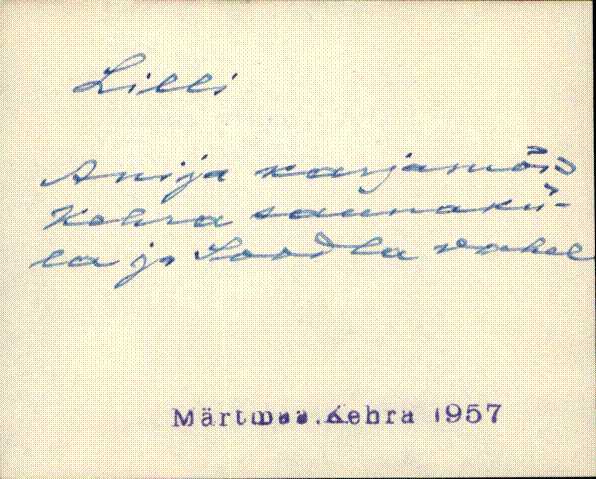 Lilli
Anija karjamõis
Kehra saunakü-
la ja Soodla vahel
Märtmaa.Kehra 1957